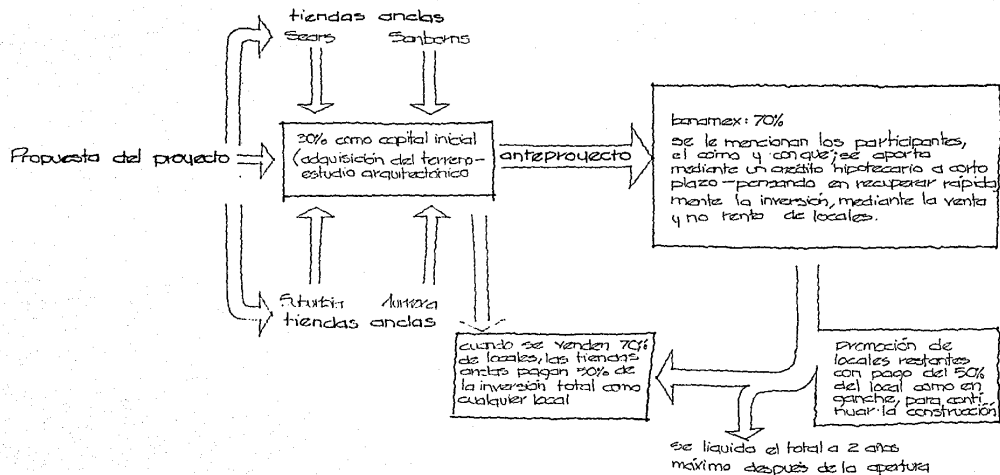 tiendas anclas
Sears Sanborns
Propuesta del proyecto
30% como capital inicial
(adquisición del terreno-
estudio arquitectónico
anteproyecto
banamex: 70%
se le mencionan los participantes,
el cómo y con qué; se aporta
mediante un crédito hipotecario a corto
plazo-pensando en recuperar rápida
mente la inversión, mediante la venta
y no renta de locales.
Futurbin Aurrera
tiendas anclas
cuando se venden 70%
de locales, las tiendas
anclas pagan 30% de
la inversión total como
cualquier local
promoción de
locales restantes
con pago del 50%
del local como en
ganche, para conti
nuar la construcción
se liquida el total a 2 años
máximo después de la apertura